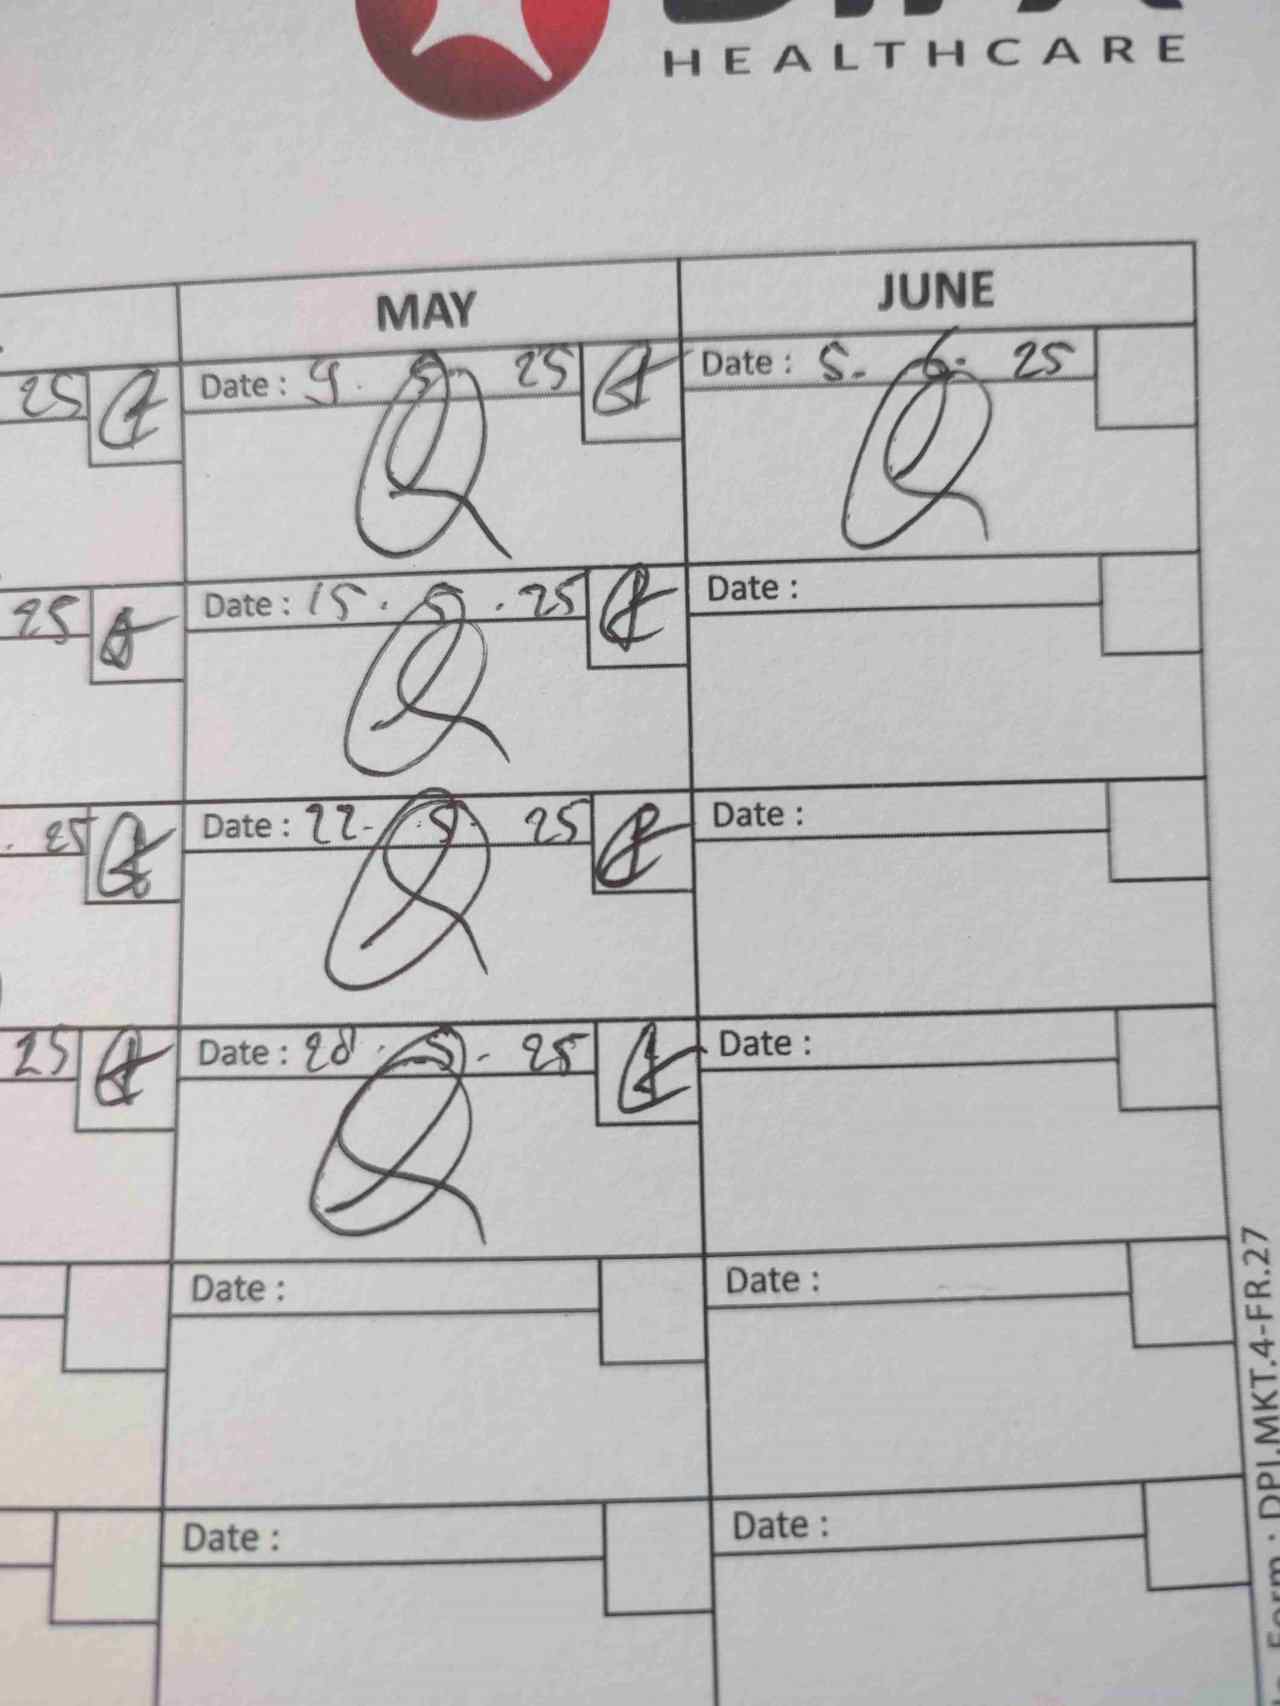 HEALTHCARE
MAY JUNE
25 Date : 9. 5. 25 Date : 5. 6. 25
25 Date : 15. 5. 25 Date :
25 Date : 22. 5. 25 Date :
25 Date : 28. 5. 25 Date :
Date : Date :
Date : Date :
Form : DPI.MKT.4-FR.27